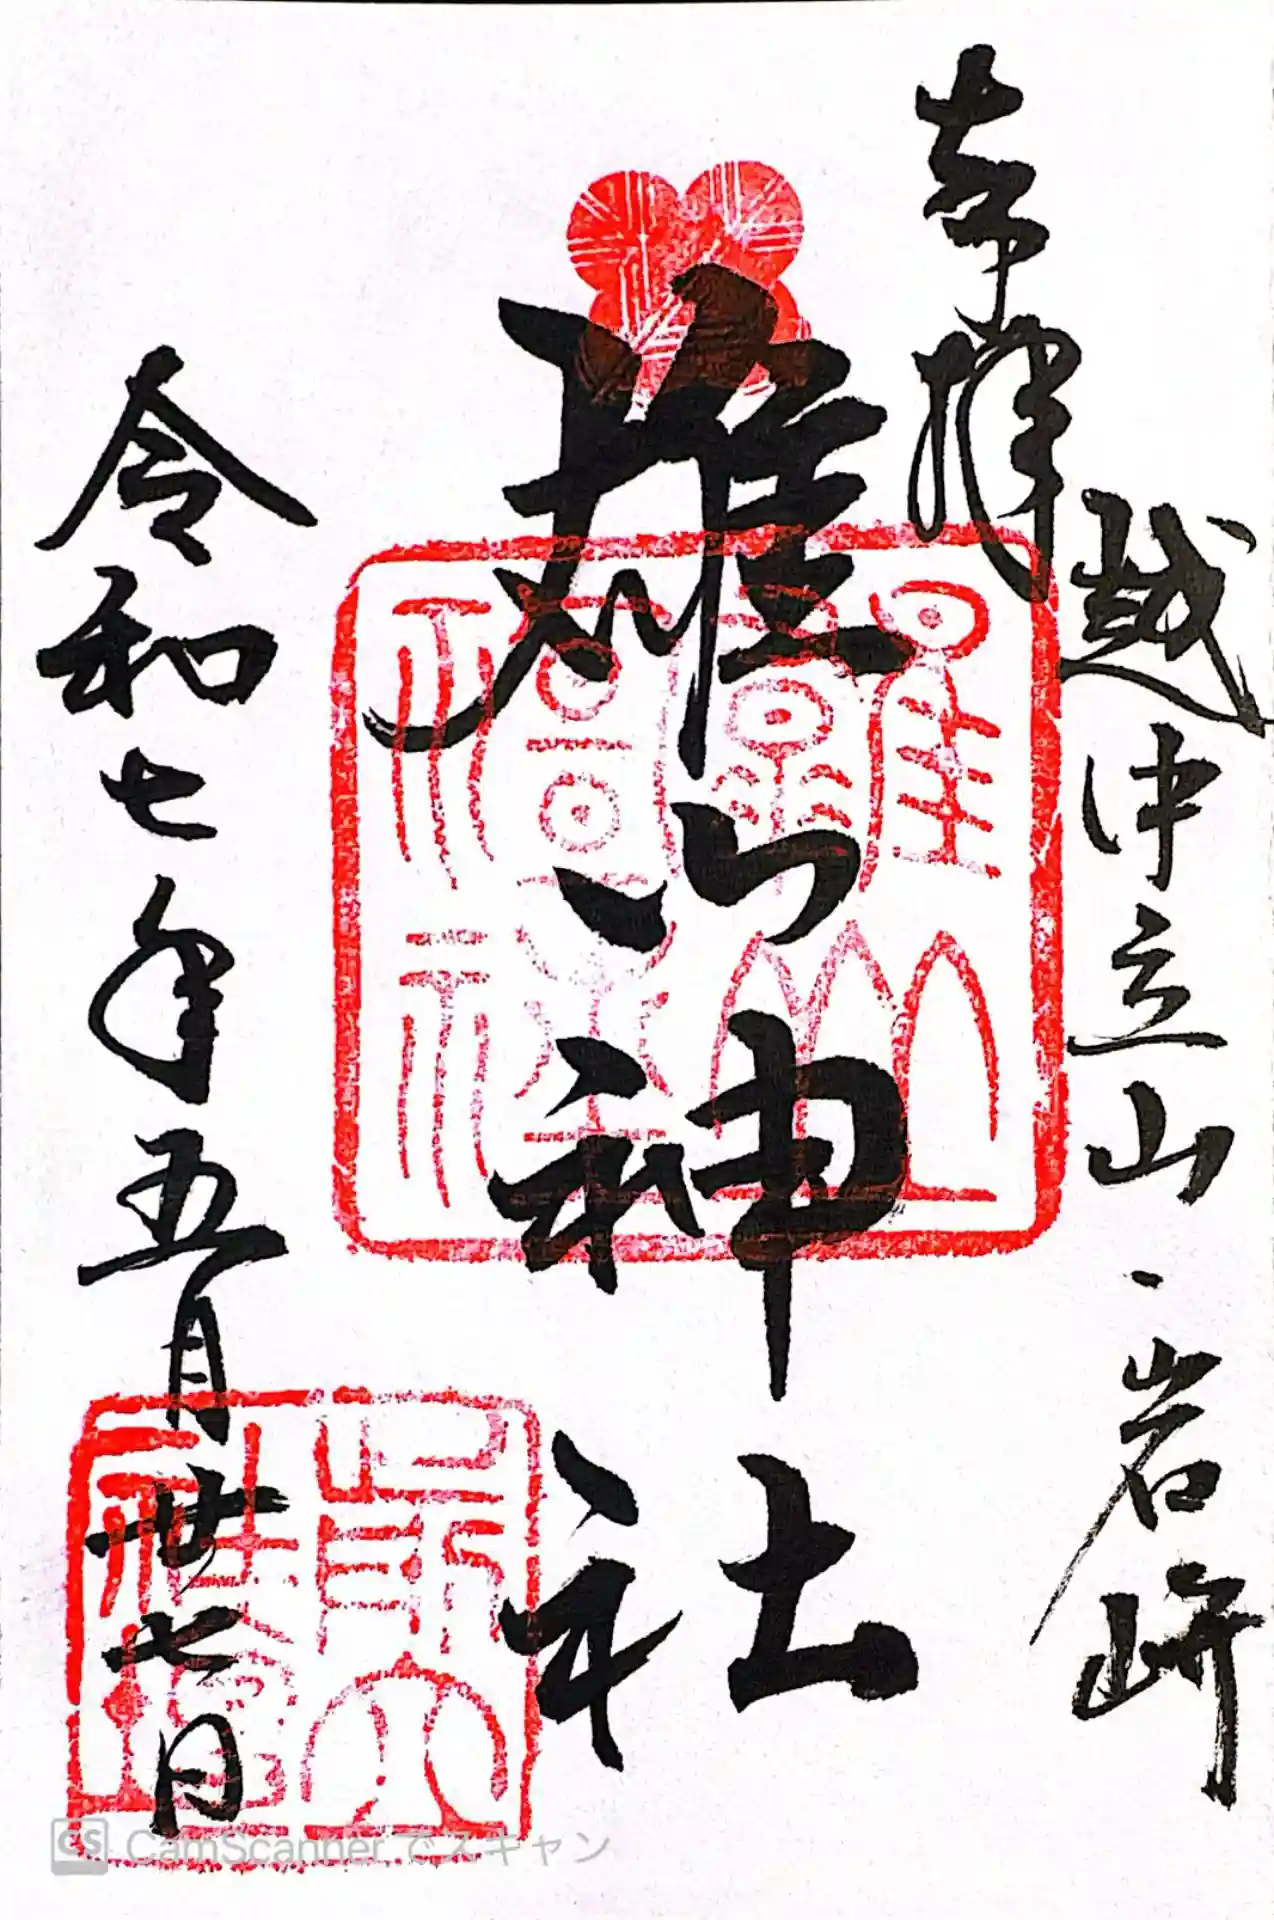 奉拝
越中立山・岩峅
雄山神社
令和七年五月廿七日
CS CamScanner でスキャン